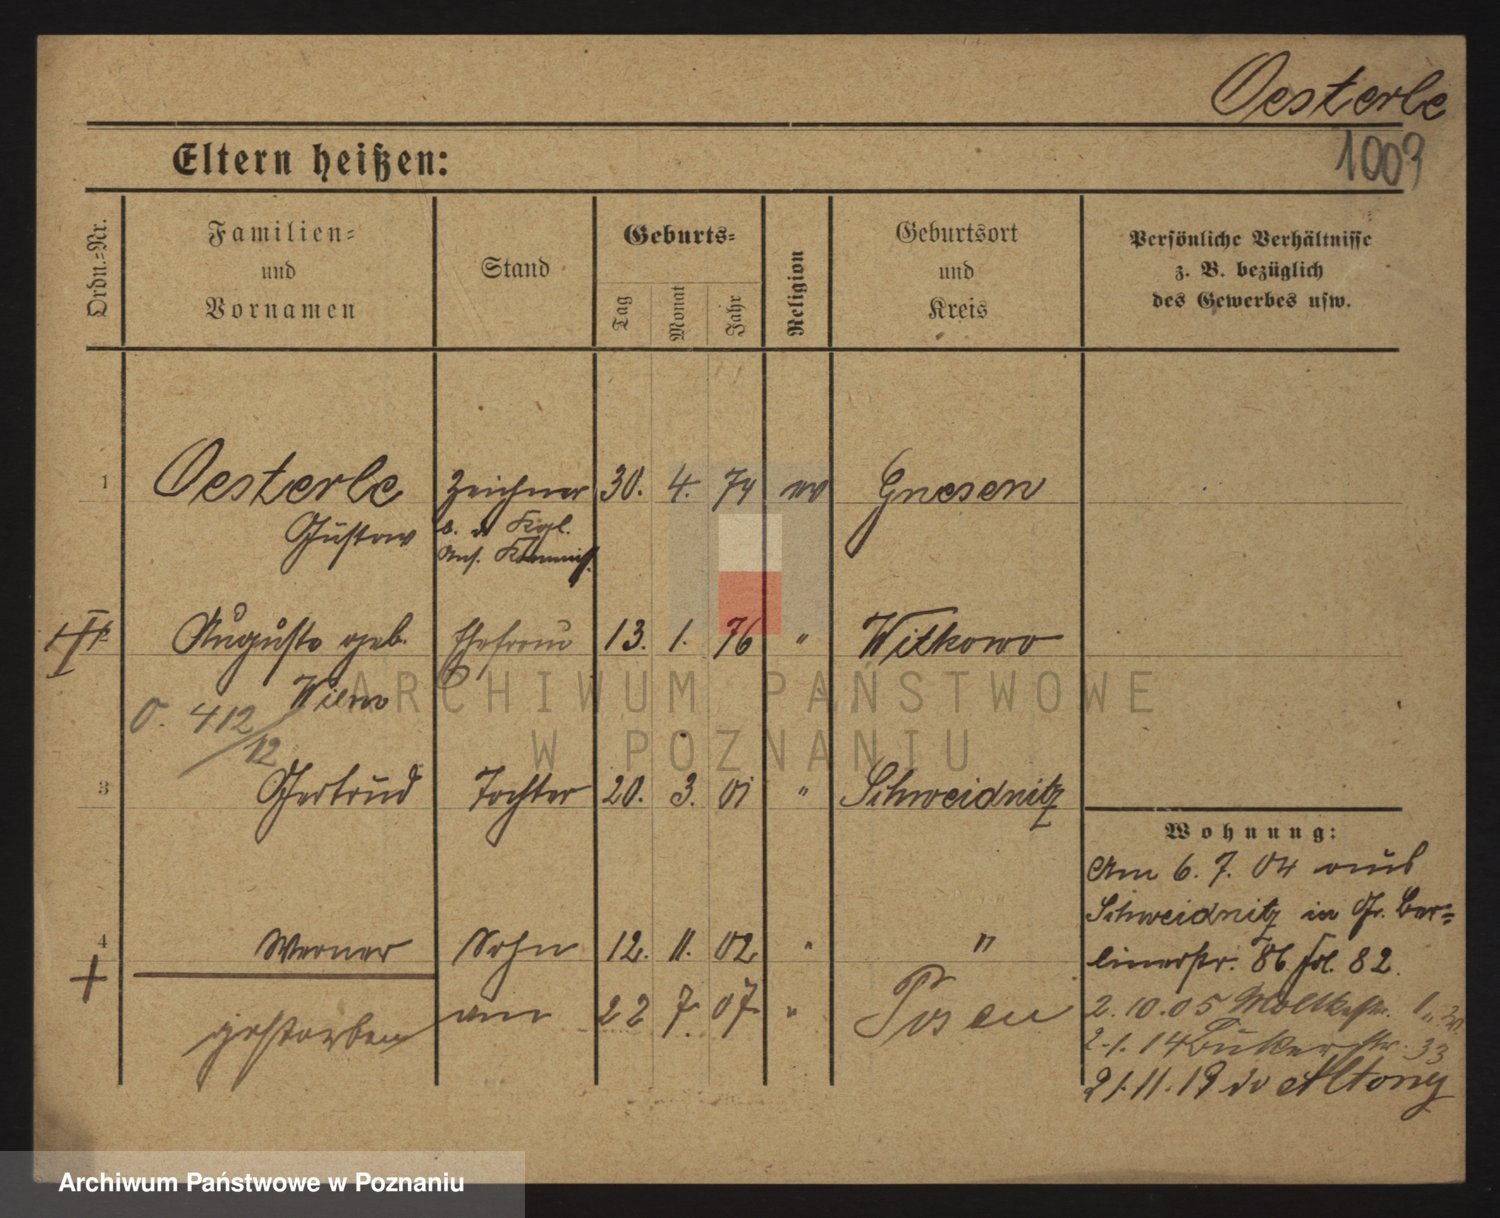 Oesterle
1003
Eltern heißen:
Ordn.-Nr.
Familien-
und
Vornamen
Stand
Geburts-
Tag
Monat
Jahr
Religion
Geburtsort
und
Kreis
Persönliche Verhältnisse
z. B. bezüglich
des Gewerbes usw.
1 Oesterle Zeichner 30. 4. 74 ev Gnesen
Gustav b. d. Kgl.
Ans. Kommiss.
II Auguste geb. Ehefrau 13. 1. 76 " Witkowo
O. 412/12
3 Gertrud Tochter 20. 3. 01 " Schweidnitz
4 Werner Sohn 12. 11. 02 " "
gestorben am 22 7. 07 " Posen
Wohnung:
Am 6. 7. 04 aus
Schweidnitz in Gr. Ber-
linerstr. 86 fol. 82.
2. 10. 05 Moltkestr. 1
2. 1. 14 33
21. 11. 19
ARCHIWUM PAŃSTWOWE
W POZNANIU
Archiwum Państwowe w Poznaniu